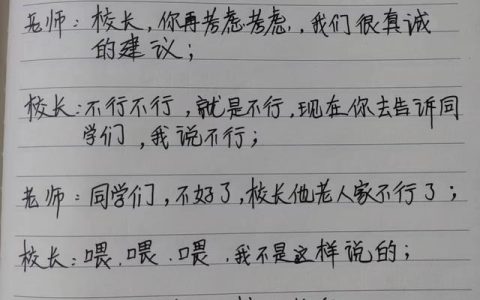 老师：校长，你再考虑考虑，我们很真诚
的建议；
校长：不行不行，就是不行，现在你去告诉同
学们，我说不行；
老师：同学们，不好了，校长他老人家不行了；
校长：喂、喂、喂，我不是这样说的；